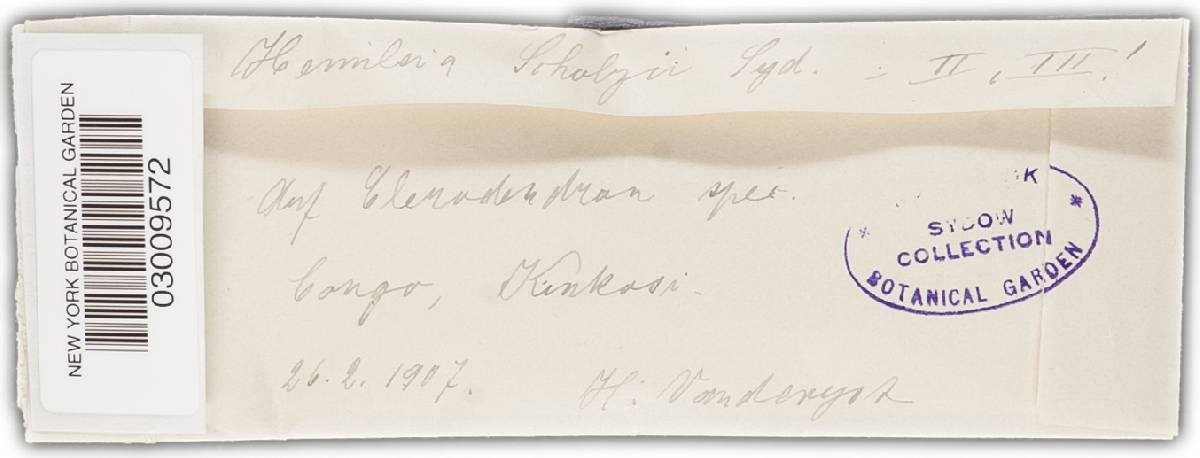 Hemileia Scholzii Syd. = II, III.!
Auf Clerodendron spec.
Congo, Kinkosi.
26.2.1907.
H. Vanderyst
NEW YORK BOTANICAL GARDEN
03009572
K
* SYDOW *
COLLECTION
BOTANICAL GARDEN